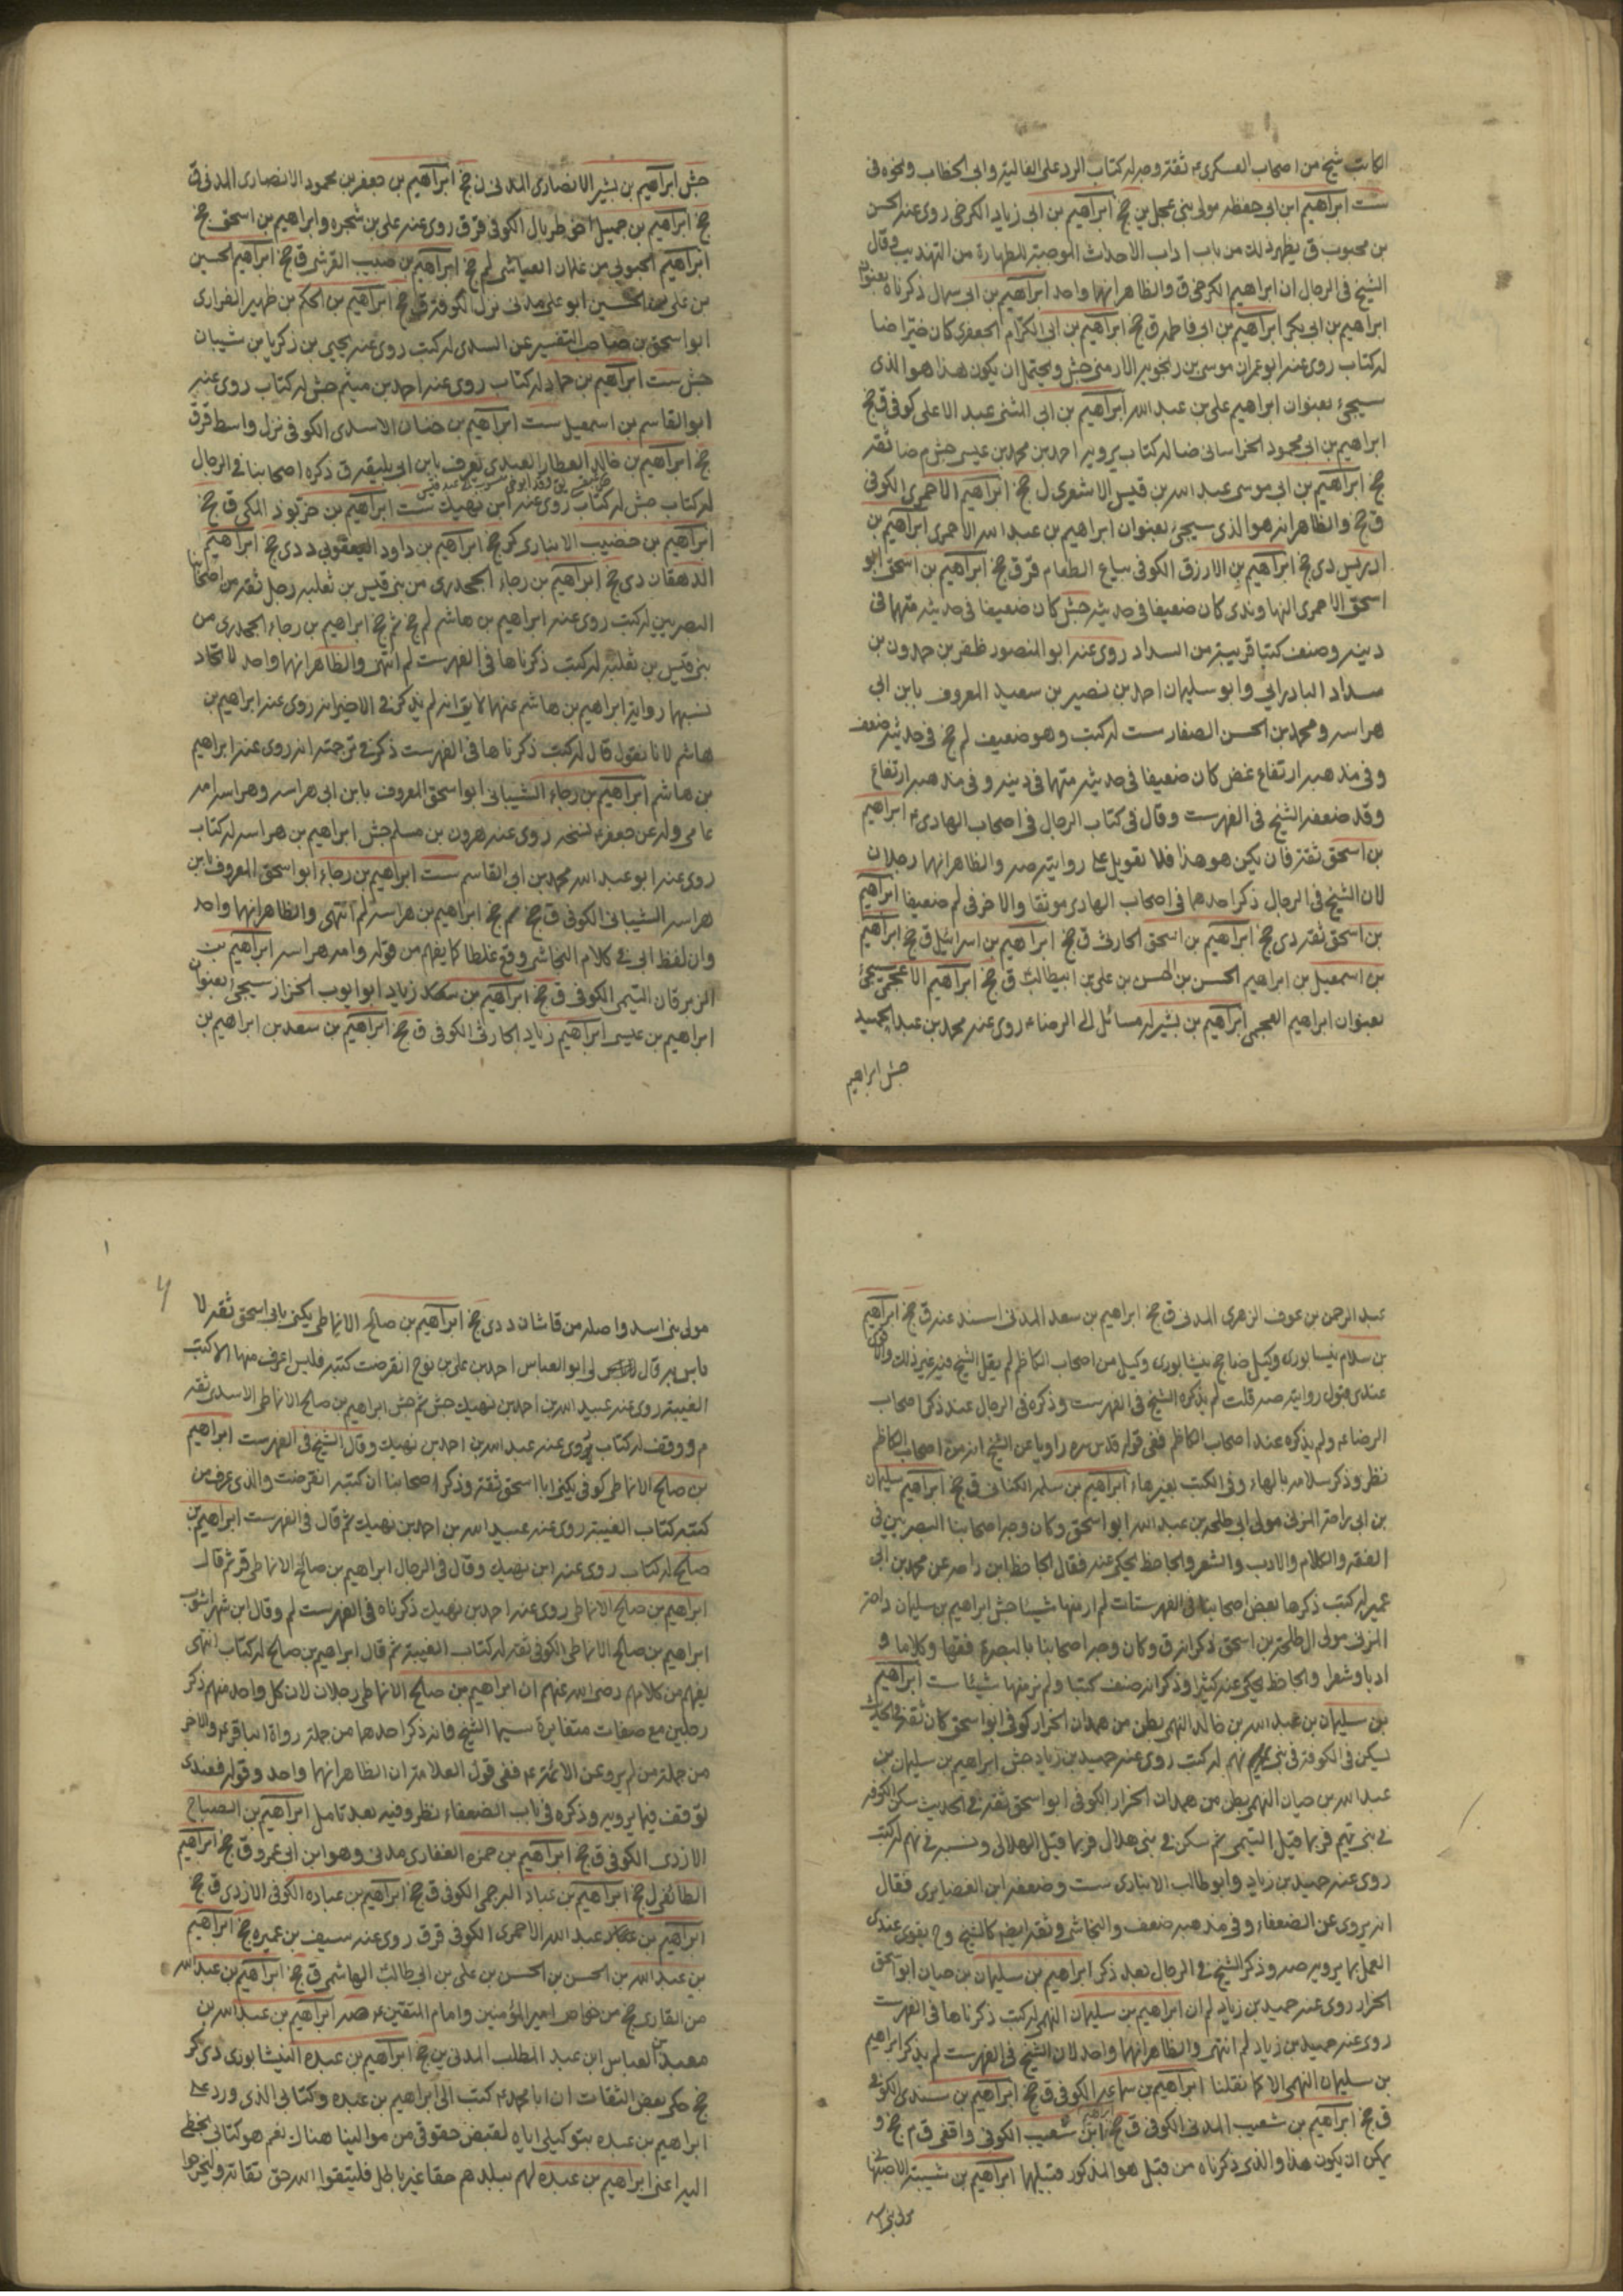 الكاتب شيخ من اصحاب العسكرى ع ثقة وجه له كتاب الرد على الغالية وابى الخطاب ونحوه فى
ست ابراهيم ابن ابى حفصه مولى بنى عجل ين جخ ابراهيم بن ابى زياد الكرخى روى عنه الحسن
بن محبوب ق يظهر ذلك من باب اداب الاحداث الموجبة للطهارة من التهذيب وقال
الشيخ فى الرجال ان ابراهيم الكرخى ق والظاهر انهما واحد ابراهيم بن ابى سمال ذكرناه بعنوان
ابراهيم بن ابى بكر ابراهيم بن ابى فاطمه ق جخ ابراهيم بن ابى الكرام الجعفرى كان خيرا ضا
له كتاب روى عنه ابو عمران موسى بن رنجويه الارمنى جش ويحتمل ان يكون هذا هو الذى
سيجئ بعنوان ابراهيم على بن عبد الله ابراهيم بن ابى المثنى عبد الاعلى كوفى ق جخ
ابراهيم بن ابى محمود الخراسانى ضا له كتاب يرويه احمد بن محمد بن عيسى جش م ضا ثقه
جخ ابراهيم بن ابى موسى عبد الله بن قيس الاشعرى ل جخ ابراهيم الاحمرى الكوفى
ق جخ والظاهر انه هو الذى سيجئ بعنوان ابراهيم بن عبد الله الاحمرى ابراهيم بن
ادريس دى جخ ابراهيم بن الازرق الكوفى بياع الطعام قر ق جخ ابراهيم بن اسحق ابو
اسحق الاحمرى النهاوندى كان ضعيفا فى حديثه جش كان ضعيفا فى حديثه متهما فى
دينه وصنف كتبا قريبة من السداد روى عنه ابو المنصور ظفر بن حمدون بن
سداد البادرايى وابو سليمان احمد بن نصير بن سعيد المعروف بابن ابى
هراسه ومحمد بن الحسن الصفار ست له كتب وهو ضعيف لم جخ فى حديثه ضعف
وفى مذهبه ارتفاع غض كان ضعيفا فى حديثه متهما فى دينه وفى مذهبه ارتفاع
وقد ضعفه الشيخ فى الفهرست وقال فى كتاب الرجال فى اصحاب الهادى ع ابراهيم
بن اسحق ثقة فان يكن هو هذا فلا تعويل على روايته صه والظاهر انهما رجلان
لان الشيخ فى الرجال ذكر احدهما فى اصحاب الهادى موثقا والاخر فى لم ضعيفا ابراهيم
بن اسحق ثقه دى جخ ابراهيم بن اسحق الحارثى ق جخ ابراهيم بن اسرائيل ق جخ ابراهيم
بن اسمعيل بن ابراهيم الحسن بن الحسن بن على بن ابيطالب ق جخ ابراهيم الاعجمى سيجئ
بعنوان ابراهيم العجمى ابراهيم بن بشير له مسائل الى الرضا ع روى عنه محمد بن عبد الحميد
جش ابراهيم
جش ابراهيم بن بشير الانصارى المدنى ن جخ ابراهيم بن جعفر بن محمود الانصارى المدنى ق
جخ ابراهيم بن جميل اخى طربال الكوفى قر ق روى عنه على بن شجره وابراهيم بن اسحق جخ
ابراهيم الحبوبى من غلمان العياشى لم جخ ابراهيم بن حبيب القرشى ق جخ ابراهيم الحسين
بن على بن الحسين ابو على مدنى نزل الكوفة ق جخ ابراهيم بن الحكم بن ظهير الفزارى
ابو اسحق بن صاحب التفسير عن السدى له كتب روى عنه يحيى بن زكريا بن شيبان
جش ست ابراهيم بن حماد له كتاب روى عنه احمد بن ميثم جش له كتاب روى عنه
ابو القاسم بن اسمعيل ست ابراهيم بن حنان الاسدى الكوفى نزل واسط قر ق
جخ ابراهيم بن خالد العطار العبدى تعرف بابن ابى مليقه ق ذكره اصحابنا فى الرجال
له كتاب جش له كتاب روى عنه ابن نهيك ست ابراهيم بن خربوذ المكى ق جخ
ابراهيم بن خضيب الانبارى كر جخ ابراهيم بن داود اليعقوبى د دى جخ ابراهيم
الدهقان دى جخ ابراهيم بن رجاء الجحدرى من بنى قيس بن ثعلبه رجل ثقه من اصحابنا
البصريين له كتب روى عنه ابراهيم بن هاشم لم جخ ثم جخ ابراهيم بن رجاء الجحدرى من
بنى قيس بن ثعلبه له كتب ذكرناها فى الفهرست لم انتهى والظاهر انهما واحد لاتحاد
نسبهما رواية ابراهيم بن هاشم عنهما لا يق انه لم يذكر فى الاخير انه روى عنه ابراهيم بن
هاشم لانا نقول قال له كتب ذكرناها فى الفهرست ذكر فى ترجمته انه روى عنه ابراهيم
بن هاشم ابراهيم بن رجاء الشيبانى ابو اسحق المعروف بابن ابى هراسه وهراسه امه
عامى وله عن جعفر ع نسخه روى عنه هرون بن مسلم جش ابراهيم بن هراسه له كتاب
روى عنه ابو عبد الله محمد بن ابى القاسم ست ابراهيم بن رجاء ابو اسحق المعروف بابن
هراسه الشيبانى الكوفى ق جخ ثم جخ ابراهيم بن هراسه لم انتهى والظاهر انهما واحد
وان لفظ ابى فى كلام النجاشى وقع غلطا كما يفهم من قوله وامه هراسه ابراهيم بن
الزبرقان التيمى الكوفى ق جخ ابراهيم بن زياد ابو ايوب الخزاز سيجئ بعنوان
ابراهيم بن عيسى ابراهيم زياد الحارثى الكوفى ق جخ ابراهيم بن سعد بن ابراهيم بن
عبد الرحمن بن عوف الزهرى المدنى ق جخ ابراهيم بن سعد المدنى اسند عنه ق جخ ابراهيم
بن سلام نيسابورى وكيل ضا جخ نيشابورى وكيل من اصحاب الكاظم لم يقل الشيخ فيه غير ذلك والاقوى
عندى قبول روايته صه قلت لم يذكره الشيخ فى الفهرست وذكره فى الرجال عند ذكر اصحاب
الرضا ع ولم يذكره عند اصحاب الكاظم ففى قوله قدس سره راويا عن الشيخ انه من اصحاب الكاظم
نظر وذكر سلامه بالهاء وفى الكتب بغير هاء ابراهيم بن سلمه الكنانى ق جخ ابراهيم سليمان
بن ابى داحة المزنى مولى ابى طلحه بن عبد الله ابو اسحق وكان وجه اصحابنا البصريين فى
الفقه والكلام والادب والشعر والجاحظ يحكى عنه فقال الجاحظ ابن داحه عن محمد بن ابى
عمير له كتب ذكرها بعض اصحابنا فى الفهرستات لم ار منها شيئا جش ابراهيم بن سليمان داحة
المزنى مولى ال طلحة بن اسحق ذكر انه ق وكان وجه اصحابنا بالبصرة فقها وكلاما و
ادبا وشعرا والجاحظ يحكى عنه كثيرا وذكر انه صنف كتبا ولم نر منها شيئا ست ابراهيم
بن سليمان بن عبد الله بن خالد النهمى بطن من همدان الخزاز كوفى ابو اسحق كان ثقه فى الحديث
يسكن فى الكوفة فى بنى نهم له كتب روى عنه حميد بن زياد جش ابراهيم بن سليمان بن
عبد الله بن حيان النهمى بطن من همدان الخزاز الكوفى ابو اسحق ثقه فى الحديث سكن الكوفه
فى بنى تهيم فربما قيل التيمى ثم سكن فى بنى هلال فربما قيل الهلالى ونسبه فى نهم له كتب
روى عنه حميد بن زياد وابو طالب الانبارى ست وضعفه ابن الغضايرى فقال
انه يروى عن الضعفاء وفى مذهبه ضعف والنجاشى وثقه ايضا كالشيخ وح يقوى عندى
العمل بما يرويه صه وذكر الشيخ فى الرجال بعد ذكر ابراهيم بن سليمان بن حيان ابو اسحق
الخزاز روى عنه حميد بن زياد لم ان ابراهيم بن سليمان النهمى له كتب ذكرناها فى الفهرست
روى عنه حميد بن زياد لم انتهى والظاهر انهما واحد لان الشيخ فى الفهرست لم يذكر ابراهيم
بن سليمان النهمى الا كما نقلنا ابراهيم بن سماعه الكوفى ق جخ ابراهيم بن سندى الكوفى
ق جخ ابراهيم بن شعيب المدنى الكوفى ق جخ ابراهيم ابن شعيب الكوفى واقفى ق م جخ و
يمكن ان يكون هذا والذى ذكرناه من قبل هو المذكور قبيلها ابراهيم بن شيبة الاصبهانى
مولى بنى اسد
مولى بنى اسد واصله من قاشان د دى جخ ابراهيم بن صالح الانماطى يكنى بابى اسحق ثقه لا
باس به قال لى ابو العباس احمد بن على بن نوح انقرضت كتبه فليس اعرف منها الا كتب
الغيبة روى عنه عبيد الله بن احمد بن نهيك جش ثم جش ابراهيم بن صالح الانماطى الاسدى ثقه
م ووقف له كتاب يروى عنه عبد الله بن احمد بن نهيك وقال الشيخ فى الفهرست ابراهيم
بن صالح الانماطى كوفى يكنى ابا اسحق ثقة وذكر اصحابنا ان كتبه انقرضت والذى عرف من
كتبه كتاب الغيبة روى عنه عبيد الله بن احمد بن نهيك ثم قال فى الفهرست ابراهيم بن
صالح له كتاب روى عنه ابن نهيك وقال فى الرجال ابراهيم بن صالح الانماطى قر ثم قال
ابراهيم بن صالح الانماطى روى عنه احمد بن نهيك ذكرناه فى الفهرست لم وقال ابن شهراشوب
ابراهيم بن صالح الانماطى الكوفى ثقه له كتاب الغيبة ثم قال ابراهيم بن صالح له كتاب انتهى
يفهم من كلامهم رضى الله عنهم ان ابراهيم بن صالح الانماطى رجلان لان كل واحد منهم ذكر
رجلين مع صفات متغايرة سيما الشيخ فانه ذكر احدهما من جملة رواة الباقر ع والاخر
من جملة من لم يرو عن الائمة ع ففى قول العلامة ان الظاهر انهما واحد وقوله فعندى
توقف فيما يرويه وذكره فى باب الضعفاء نظر وفيه بعد تامل ابراهيم بن الصباح
الازدى الكوفى ق جخ ابراهيم بن ضمره الغفارى مدنى وهو ابن ابى عمرو ق جخ ابراهيم
الطائفى ل جخ ابراهيم بن عباد البرجمى الكوفى ق جخ ابراهيم بن عباده الكوفى الازدى ق جخ
ابراهيم بن عبد الله الاحمرى الكوفى قر ق روى عنه سيف بن عميره جخ ابراهيم
بن عبد الله بن الحسن بن الحسن بن على بن ابى طالب الهاشمى ق جخ ابراهيم بن عبد الله
من القارى جخ من خواص امير المؤمنين وامام المتقين ع صه ابراهيم بن عبد الله بن
معبد بن العباس ابن عبد المطلب المدنى ين جخ ابراهيم بن عبده النيشابورى دى كر
جخ حكى بعض الثقات ان ابا محمد ع كتب الى ابراهيم بن عبده وكتابى الذى ورد على
ابراهيم بن عبده بتوكيلى اياه لقبض حقوقى من موالينا هناك نعم هو كتابى بخطى
اليه اعنى ابراهيم بن عبده لهم ببلدهم حقا غير باطل فليتقوا الله حق تقاته وليخرجوا